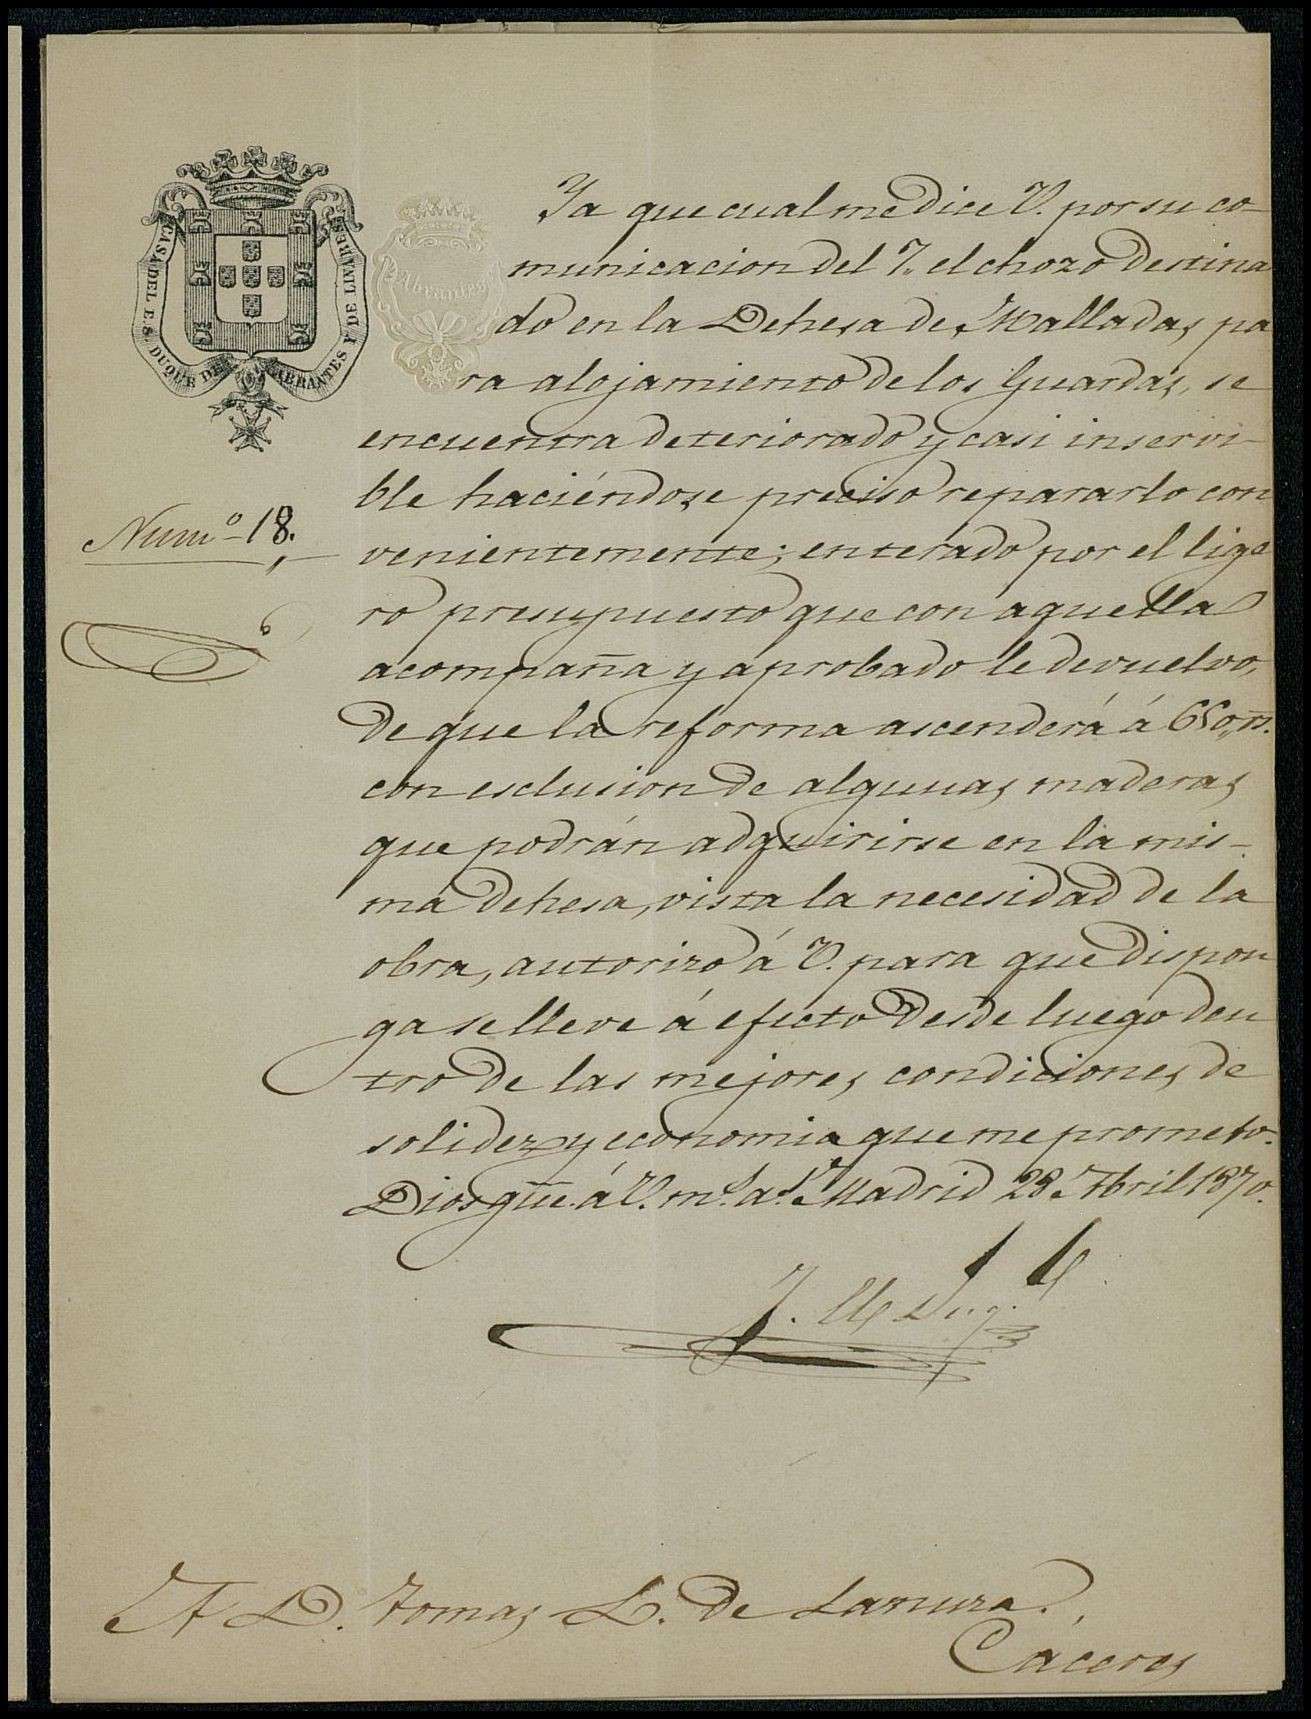 CASA DEL E. S. DUQUE DE ABRANTES Y DE LINARES
Abrantes
Ya que cual me dice V. por su co-
municacion del 7. el chozo destina
do en la Dehesa de Malladas pa
ra alojamiento de los Guardas, se
encuentra deteriorado y casi inservi-
ble haciéndose preciso repararlo con
Num.º 18.
venientemente; enterado por el lige
ro presupuesto que con aquella
acompaña y aprobado le devuelvo,
de que la reforma ascenderá á 650 rs.
con esclusion de algunas maderas
que podrán adquirirse en la mis-
ma dehesa, vista la necesidad de la
obra, autorizo á V. para que dispon
ga se lleve á efecto desde luego den
tro de las mejores condiciones de
solidez y economia que me prometo.
Dios gûe. á V. m.s a.s Madrid 28 Abril 1870.
A D. Tomas L. de Sanura.
Cáceres